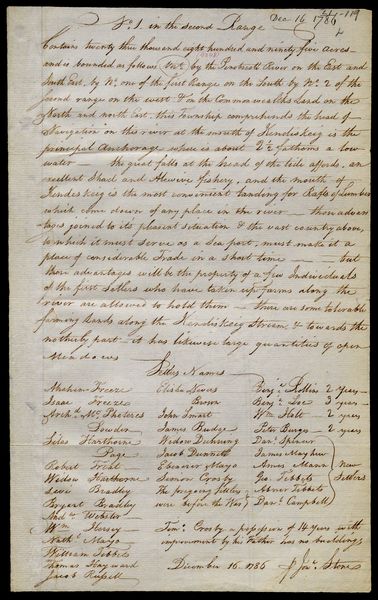 Dec 16 1786
No. 1 in the Second Range
Contains twenty three thousand eight hundred and ninety five Acres
and is bounded as follows by the Penobscott River on the East and
South East, by No. one of the first Range on the South by No. 2 of the
second range on the west & on the Commonwealths Land on the
North and north East. this Township comprehends the head of
Navigation on this river at the mouth of Kendiskeeg is the
principal Anchorage where is about 2½ fathoms a low
water — the great falls at the head of the tide affords, an
excellent Shad and Alewive fishery, and the mouth of
Kendeskeig is the most convenient landing for Rafts of Lumber
which come down of any place in the river — those advan
tages joined to its pleasent situation & the vast country above,
to which it must serve as a Sea port, must make it a
place of considerable Trade in a Short time — but
those advantages will be the property of a few Individuals
of the first Settlers who have taken up farms along the
river are allowed to hold them — there are some tolerable
farming Lands along the Kendiskeeg Stream & towards the
northerly part. it has likewise large quantities of open
Meadows
Settlers Names
Abraham Freeze
Isaac Freeze
Archd. McPheteres
Dowden
Silas Harthorne
Page
Robert Treat
Widow Harthorne
Levi Bradley
Bryant Bradley
Andw. Webster
Wm. Hersey
Nathl. Mayo
William Tibbets
Thomas Hayward
Jacob Russell
Elisha
Brown
John Smart
James Budge
Widow
Jacob Dennett
Ebenezer Mayo
Simon Crosby
The foregoing Settlers
were before the War
Benj. Rollins 2 years
Benj. 3 years
Wm. Holt 2 years
Peter Burgo 2 years
Danl. Spencer
James Mayhew
Amos Mann
Geo. Tibbets
Abner Tibbets
Danl. Campbell
New
Settlers
Simn. Crosby a possession of 14 Years with
improvements by his Father has no buildings
December 16. 1786
pr Jno. Stone